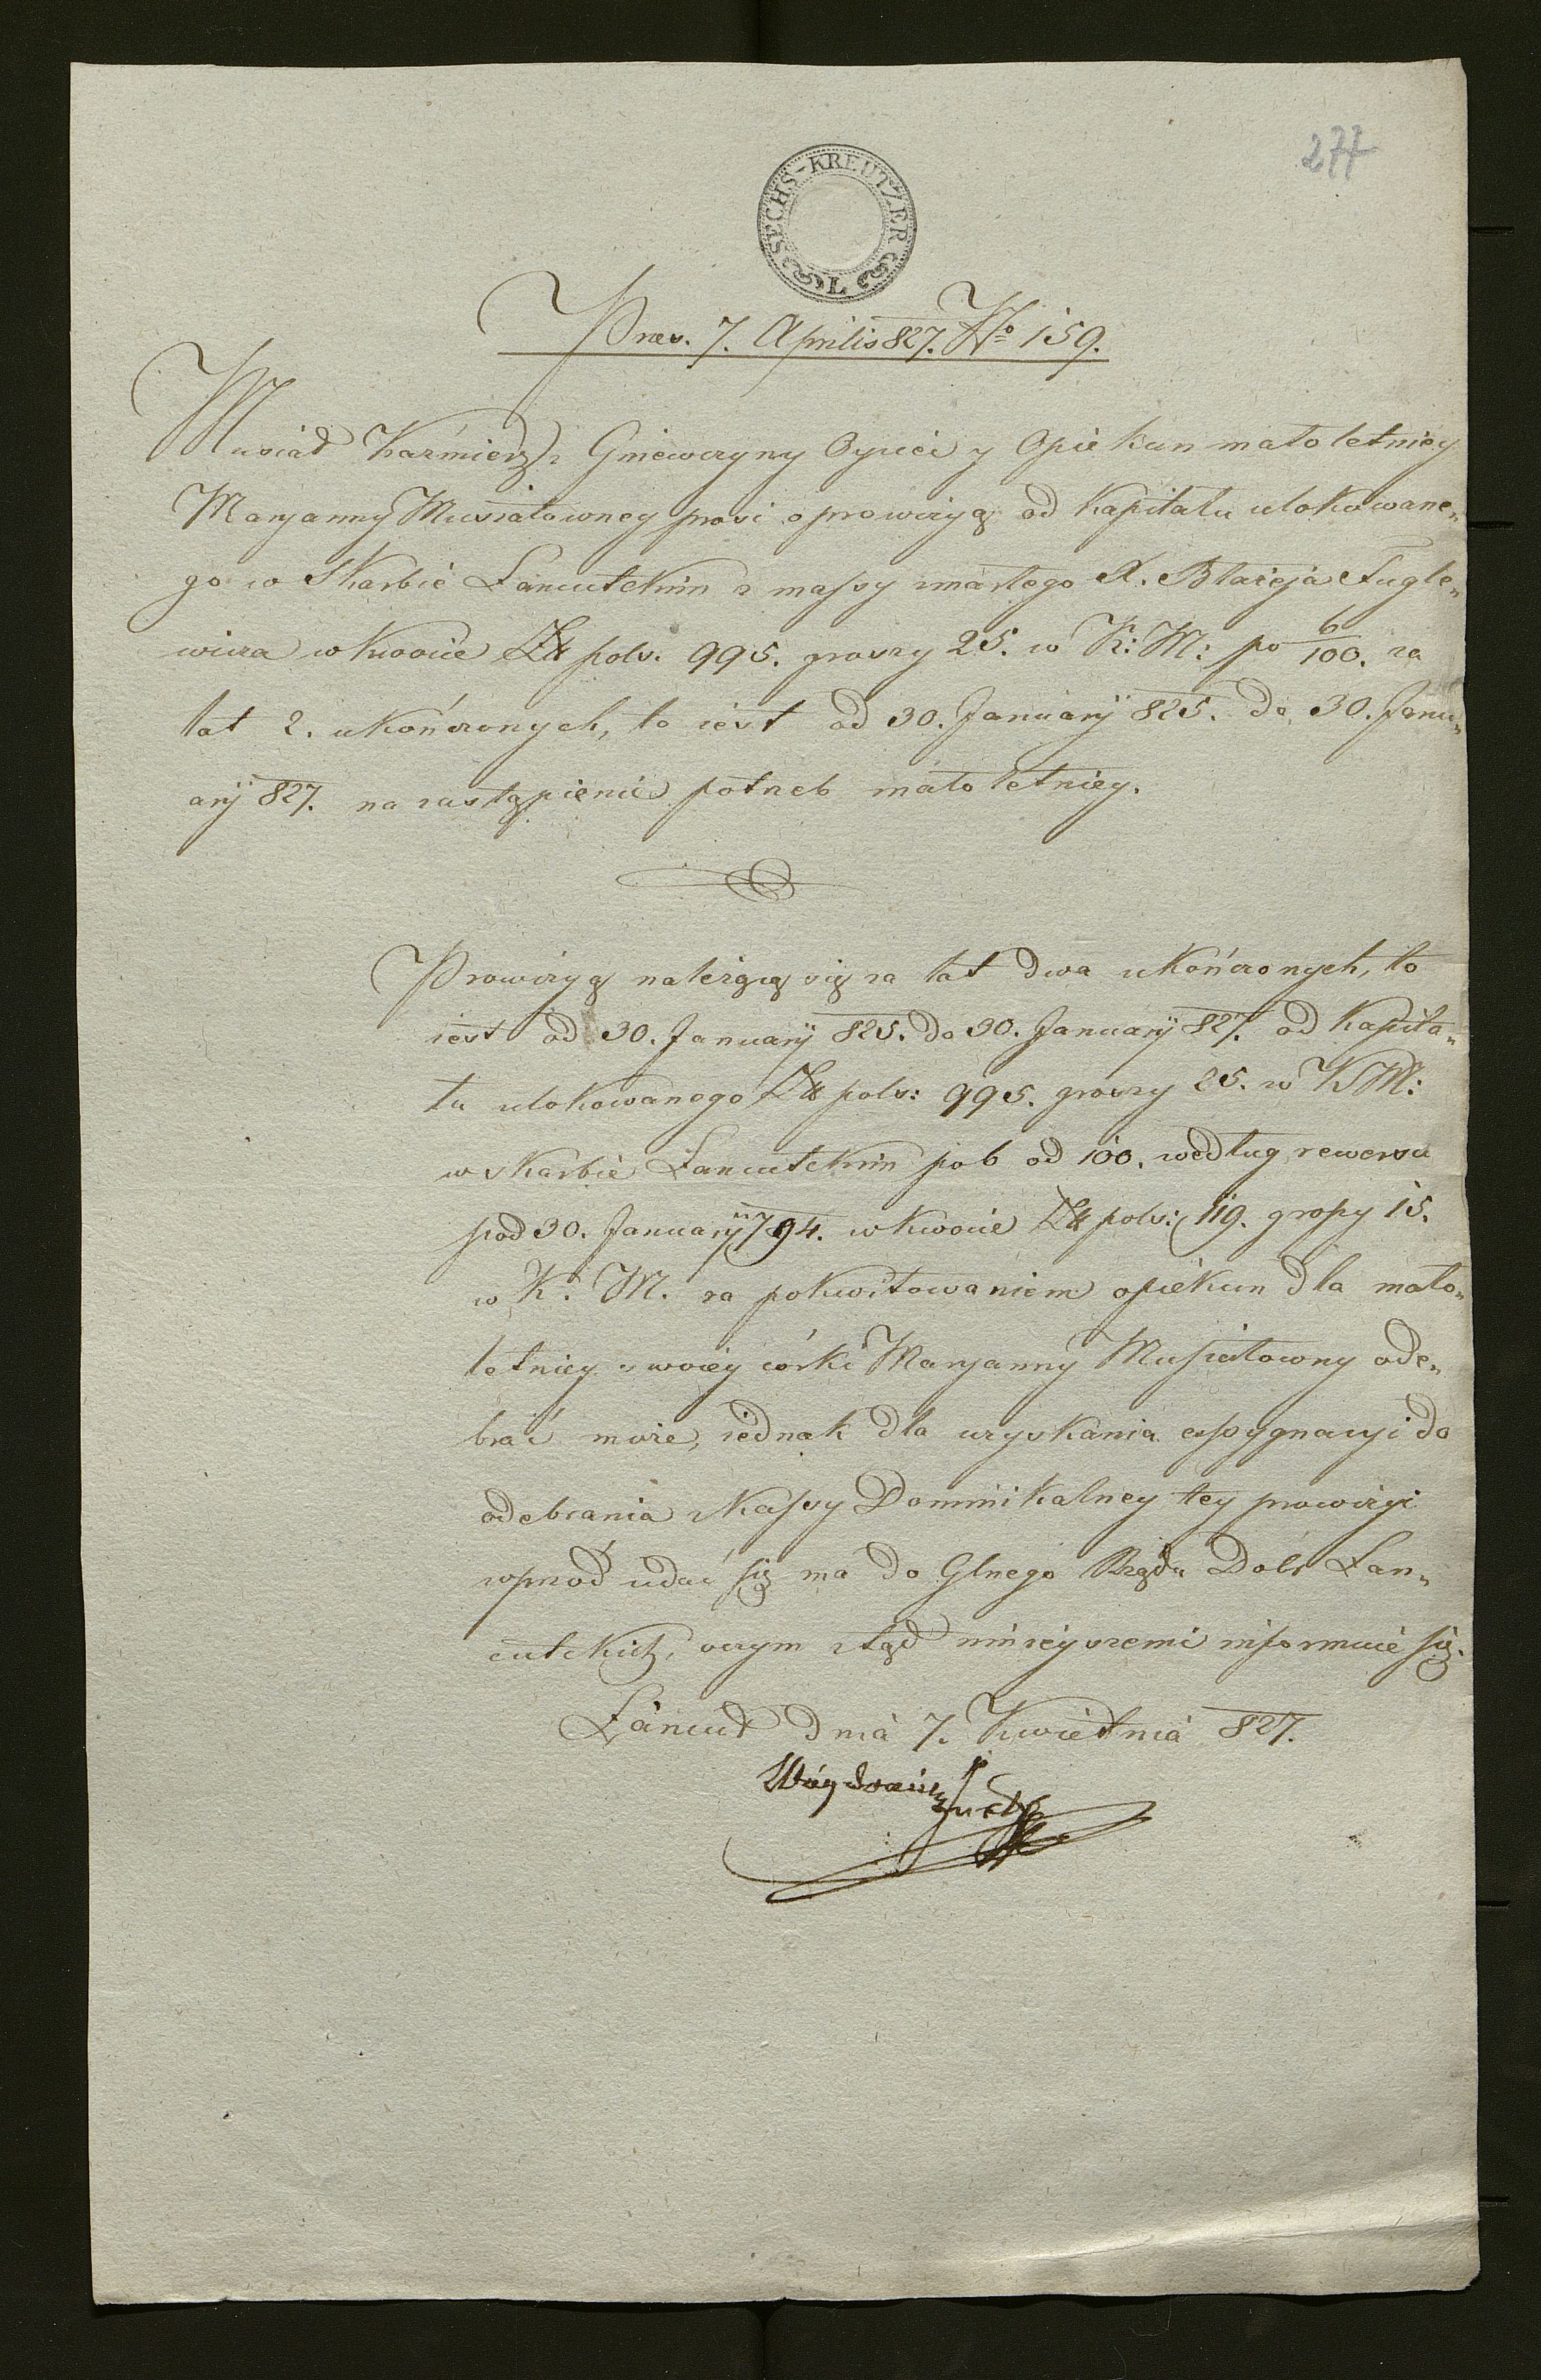 277
SECHS-KREUTZER
L
Præs. 7. Aprilis 827. No 159.
Musiał Kaźmierz z Gniewczyny Oyciec y Opiekun małoletniey
Maryanny Musiałowney prosi o prowizyą od Kapitału ulokowane„
go w Skarbie Łancutckim z massy zmarłego X. Błażeja Fugle„
wicza w kwocie Złł pols. 995. groszy 25. w K: M: po 6/100. za
lat 2. ukończonych, to iest od 30. January 825. do 30. Janu„
ary 827. na zastąpienie potrzeb małoletniey.
Prowizyą należącą się za lat dwa ukończonych, to
iest od 30. January 825. do 30. January 827. od Kapita„
łu ulokowanego Złł pols: 995. groszy 25. w K M:
w Skarbie Łancutckim po 6 od 100. według rewersu
pod 30. January 794. w kwocie Złł pols: 119. groszy 15.
w K. M. za pokwitowaniem opiekun dla mało„
letniey swoiey córki Maryanny Musiałowny ode„
brać może, iednak dla uzyskania assygnacyi do
odebrania z Kassy Dominikalney tey prowizyi
wprzód udać się ma do Glnego Rządu Dóbr Łan„
cutckich, o czym ztąd ninieyszemi informuie się.
Łańcut dnia 7. Kwietnia 827.